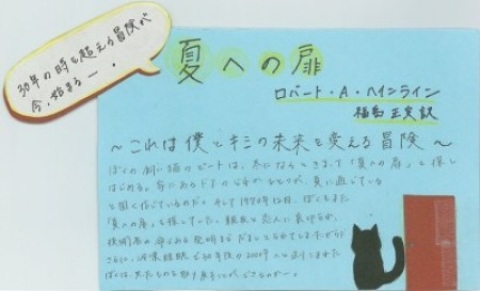 30年の時を超える冒険が
今、始まる――。
夏への扉
ロバート・A・ハインライン
福島 正実 訳
～これは僕とキミの未来を変える冒険～
ぼくの飼い猫のピートは、冬になるときまって「夏への扉」を探し
はじめる。家にあるドアの
と固く信じているのだ。そして1970年12月、ぼくもまた
「夏への扉」を探していた。親友と恋人に裏切られ、
技術者の命である発明までだましとられてしまったから
さらに、冷凍睡眠で30年後の2000年へと
ぼくは、失ったものを取り戻すことができるのか――。